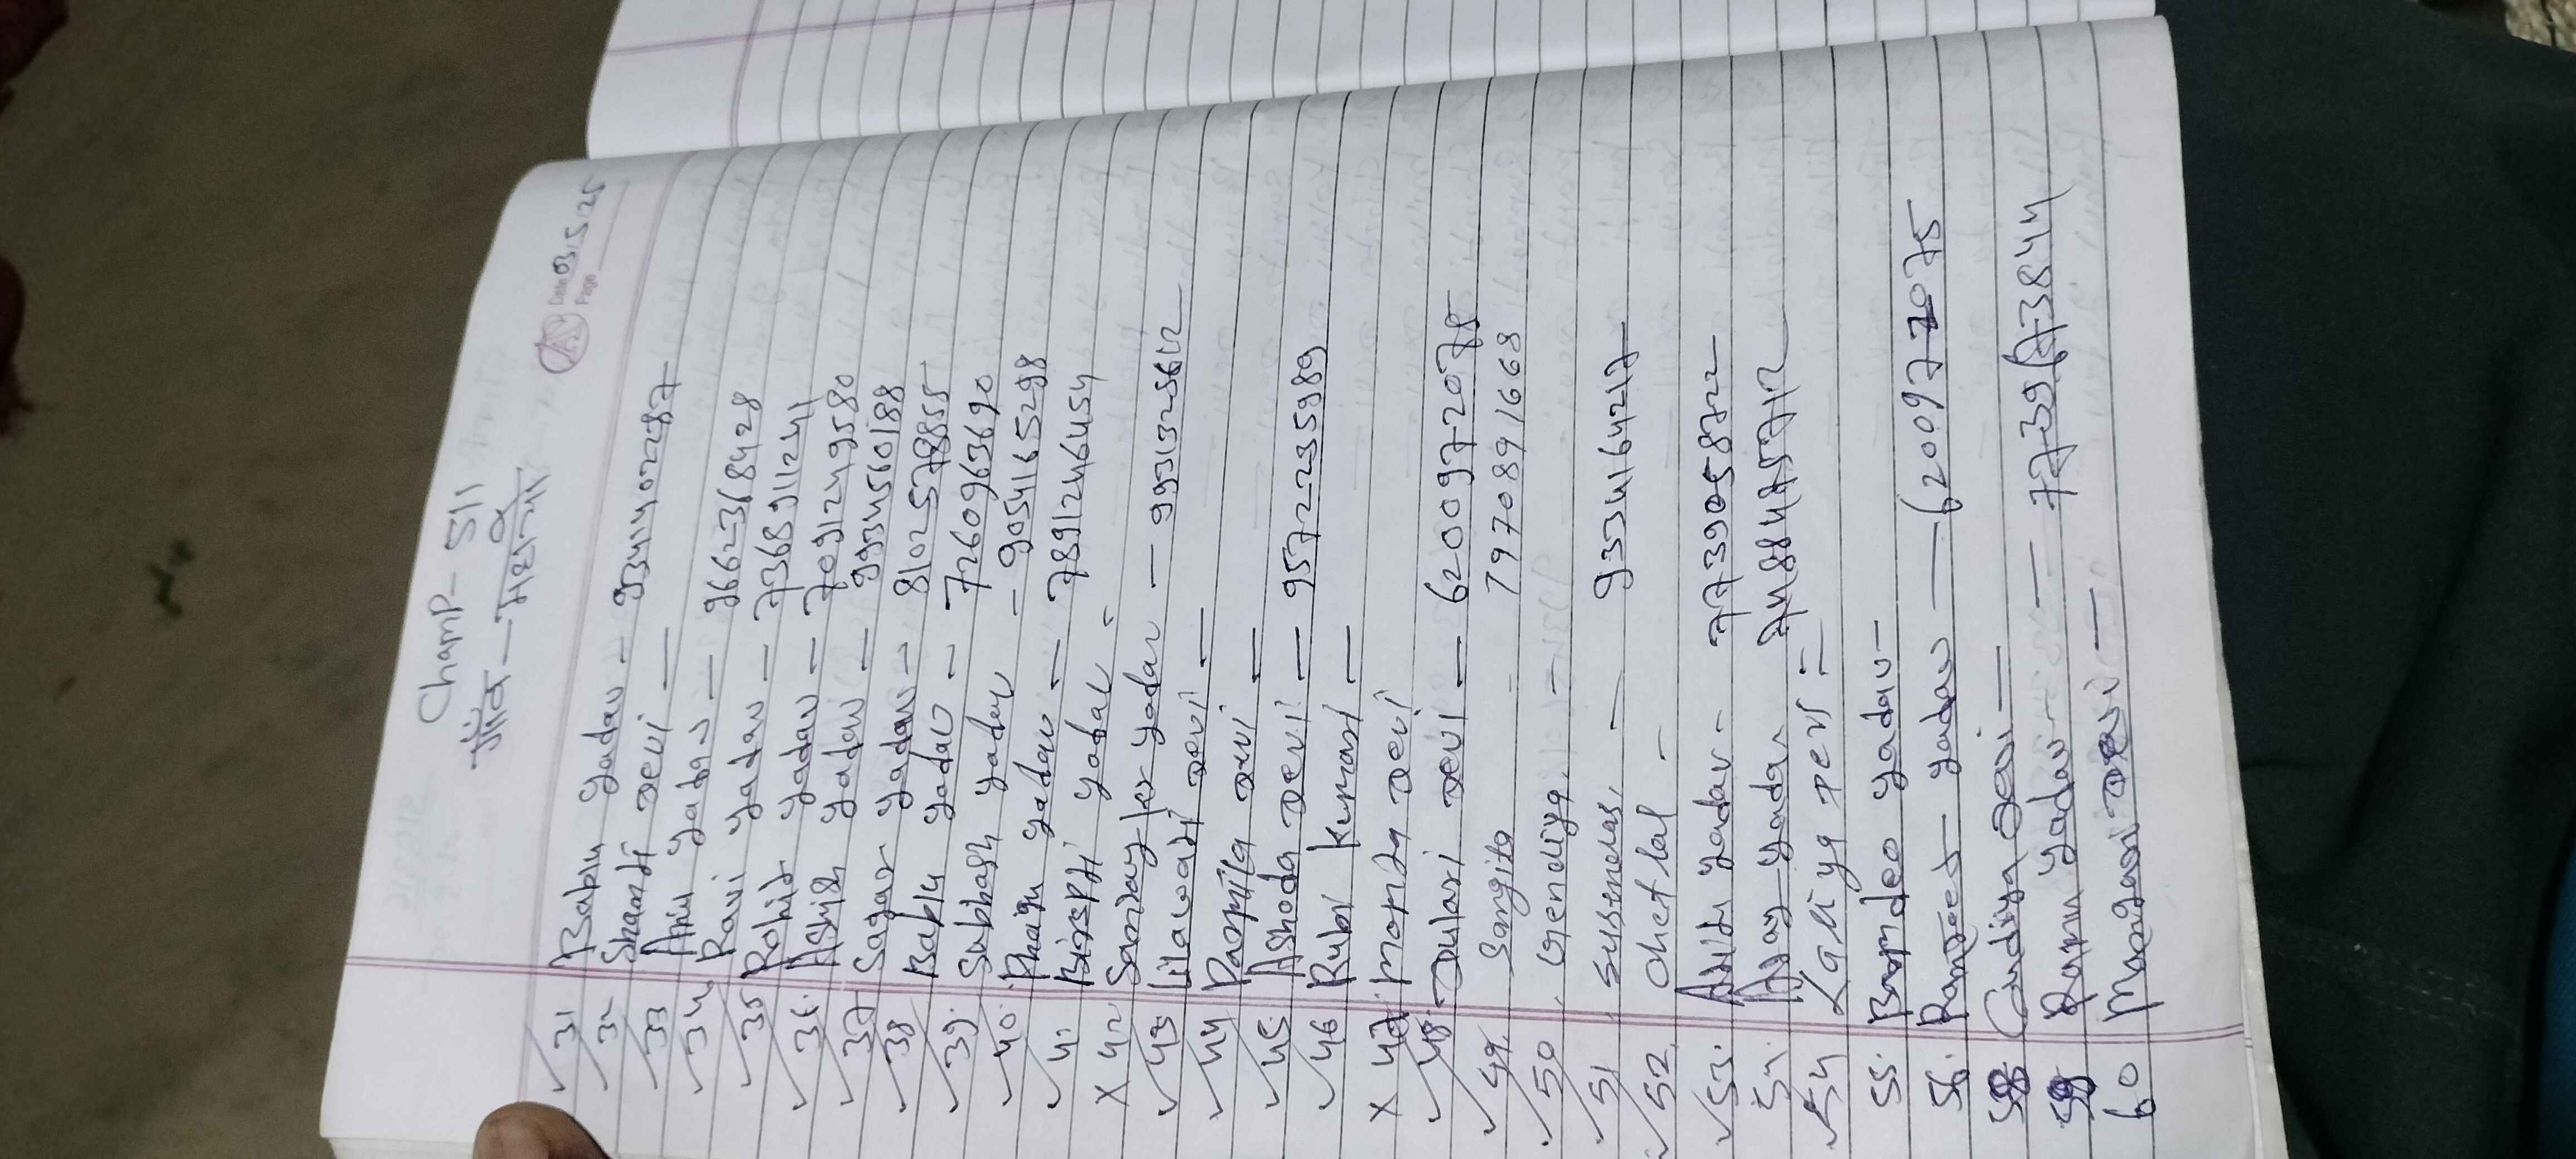 ChamP - 511
गाँव - मधान्या
Date 03/5/25
Page
31 Bablu Yadav - 9341402287
32 Shanti Devi —
33 Anu Yadav — 9662368428
34 Ravi Yadav — 7368911241
35 Rohit Yadav — 7091249580
36. Ashish Yadav — 9934560188
37 Sagar Yadav — 8102578855
38 Bablu Yadav — 7260963690
39. Subhash Yadav - 9054165298
40. Phagu Yadav — 7891246454
41. Birspti Yadav -
X 42 Sanjay kr Yadav — 9931328612
43 Lilawati Devi —
44 Parmila Devi —
45. Ashoda Devi — 9572235989
46 Rubi Kumari —
X 47. Mamta Devi
48. Dulari Devi — 6200972078
49. Sangita - 7970891668
50. Gendiya. —
51 — 9334164217
52. Chetlal. -
53. Anil Yadav - 7739058722
54. Ajay Yadav
54 Laliya Devi =
55. Bamdeo Yadav -
56. Ranjeet Yadav — 6209772075
58 Devi —
59 Ramu Yadav — 7739673844
60 Devi —